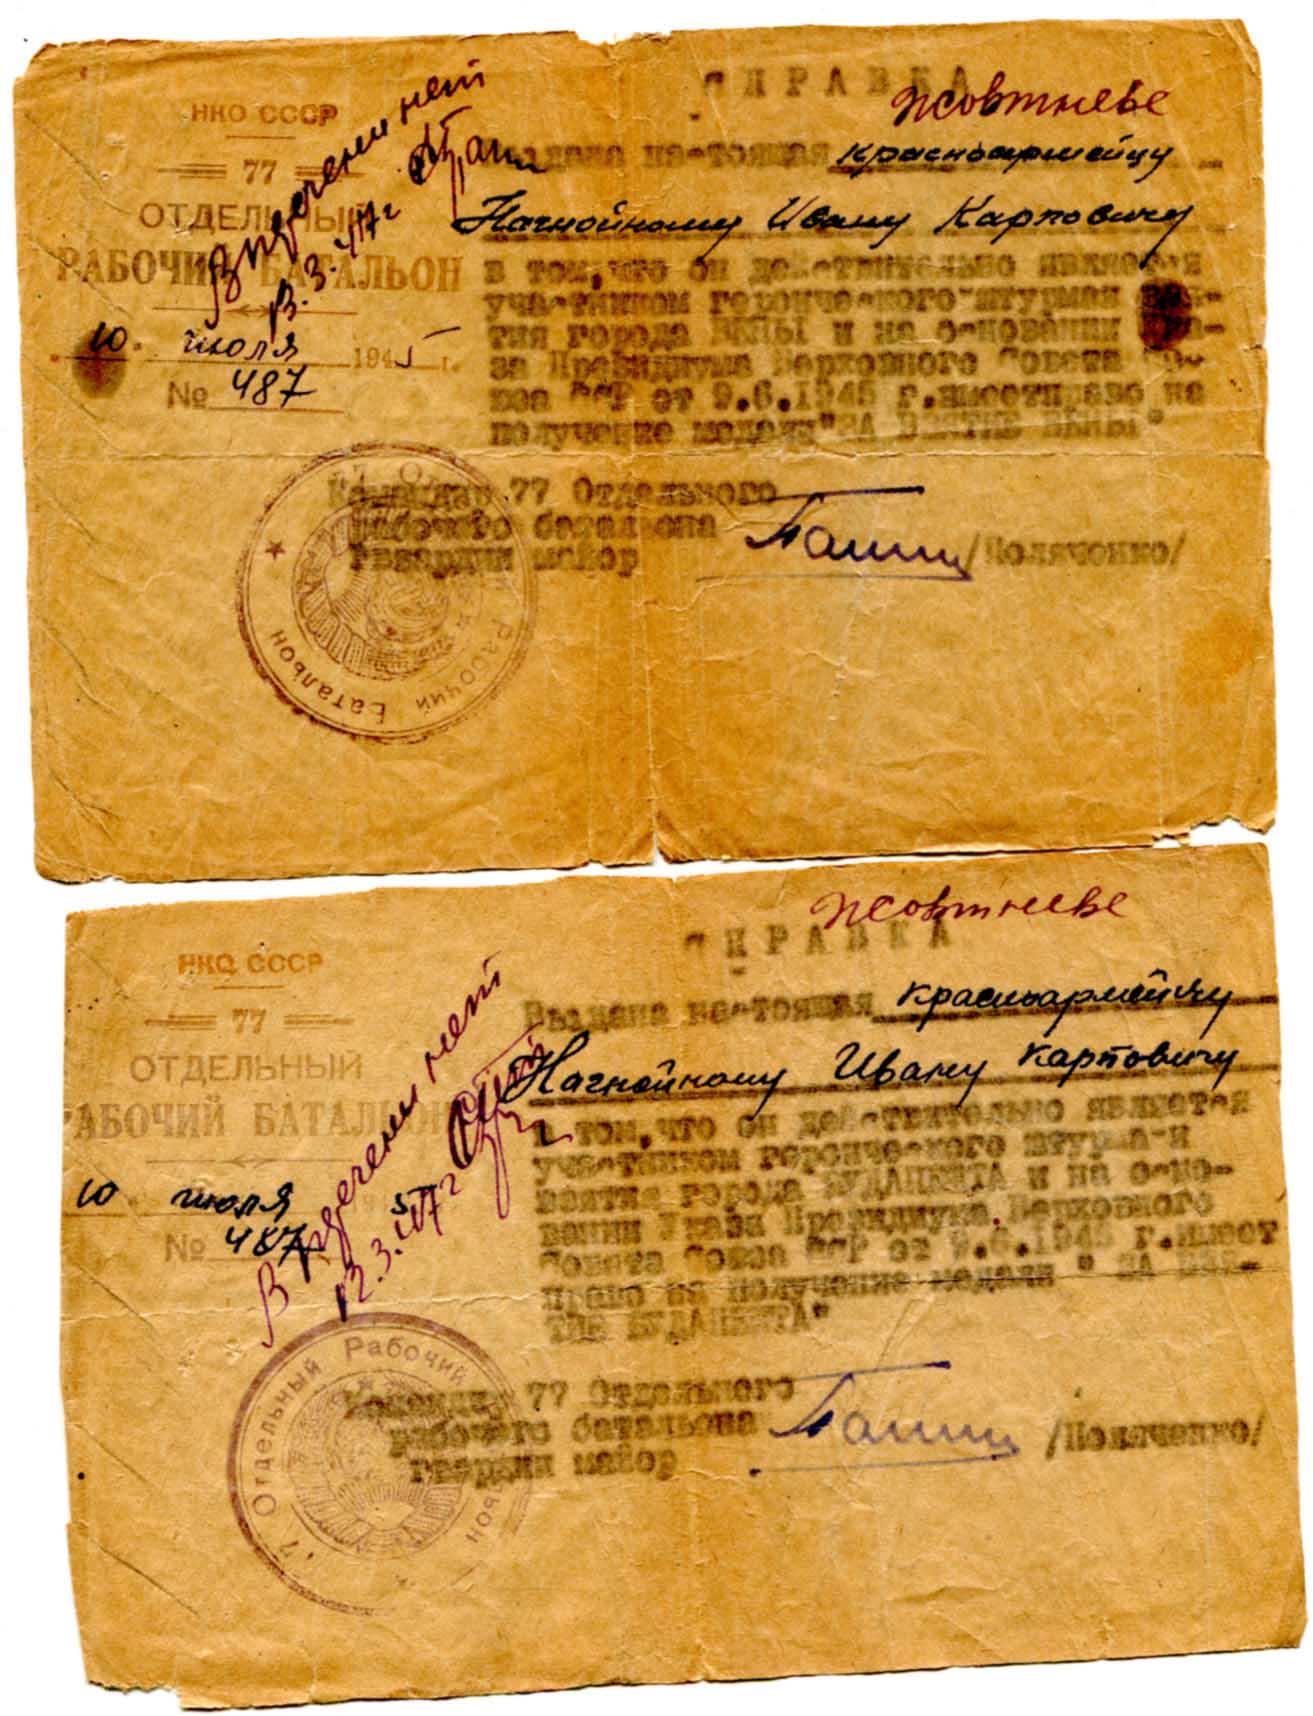 СПРАВКА
жовтневе
НКО СССР
77
ОТДЕЛЬНЫЙ
РАБОЧИЙ БАТАЛЬОН
10 июля 1945 г.
№ 487
нет
3.47г
Выдана настоящая красноармейцу
Нагнойному Ивану Карповичу
в том, что он действительно является
участником героического штурма и взя-
тия города ВЕНЫ и на основании Ука-
за Президиума Верховного Совета Со-
юза ССР от 9.6.1945 г. имеет право на
получение медали "ЗА ВЗЯТИЕ ВЕНЫ"
Командир 77 Отдельного
рабочего батальона
Гвардии майор /Поляченко/
Рабочий Батальон
жовтневе
СПРАВКА
НКО СССР
77
ОТДЕЛЬНЫЙ
РАБОЧИЙ БАТАЛЬОН
10 июля 5
№ 487
нет
12.3.47г
Выдана настоящая красноармейцу
Нагнойному Ивану Карповичу
в том, что он действительно является
участником героического штурма и
взятия города БУДАПЕШТА и на осно-
вании Указа Президиума Верховного
Совета Союза ССР от 9.6.1945 г. имеет
право на получение медали " ЗА ВЗЯ-
ТИЕ БУДАПЕШТА"
Командир 77 Отдельного
рабочего батальона
гвардии майор /Поляченко/
Отдельный Рабочий